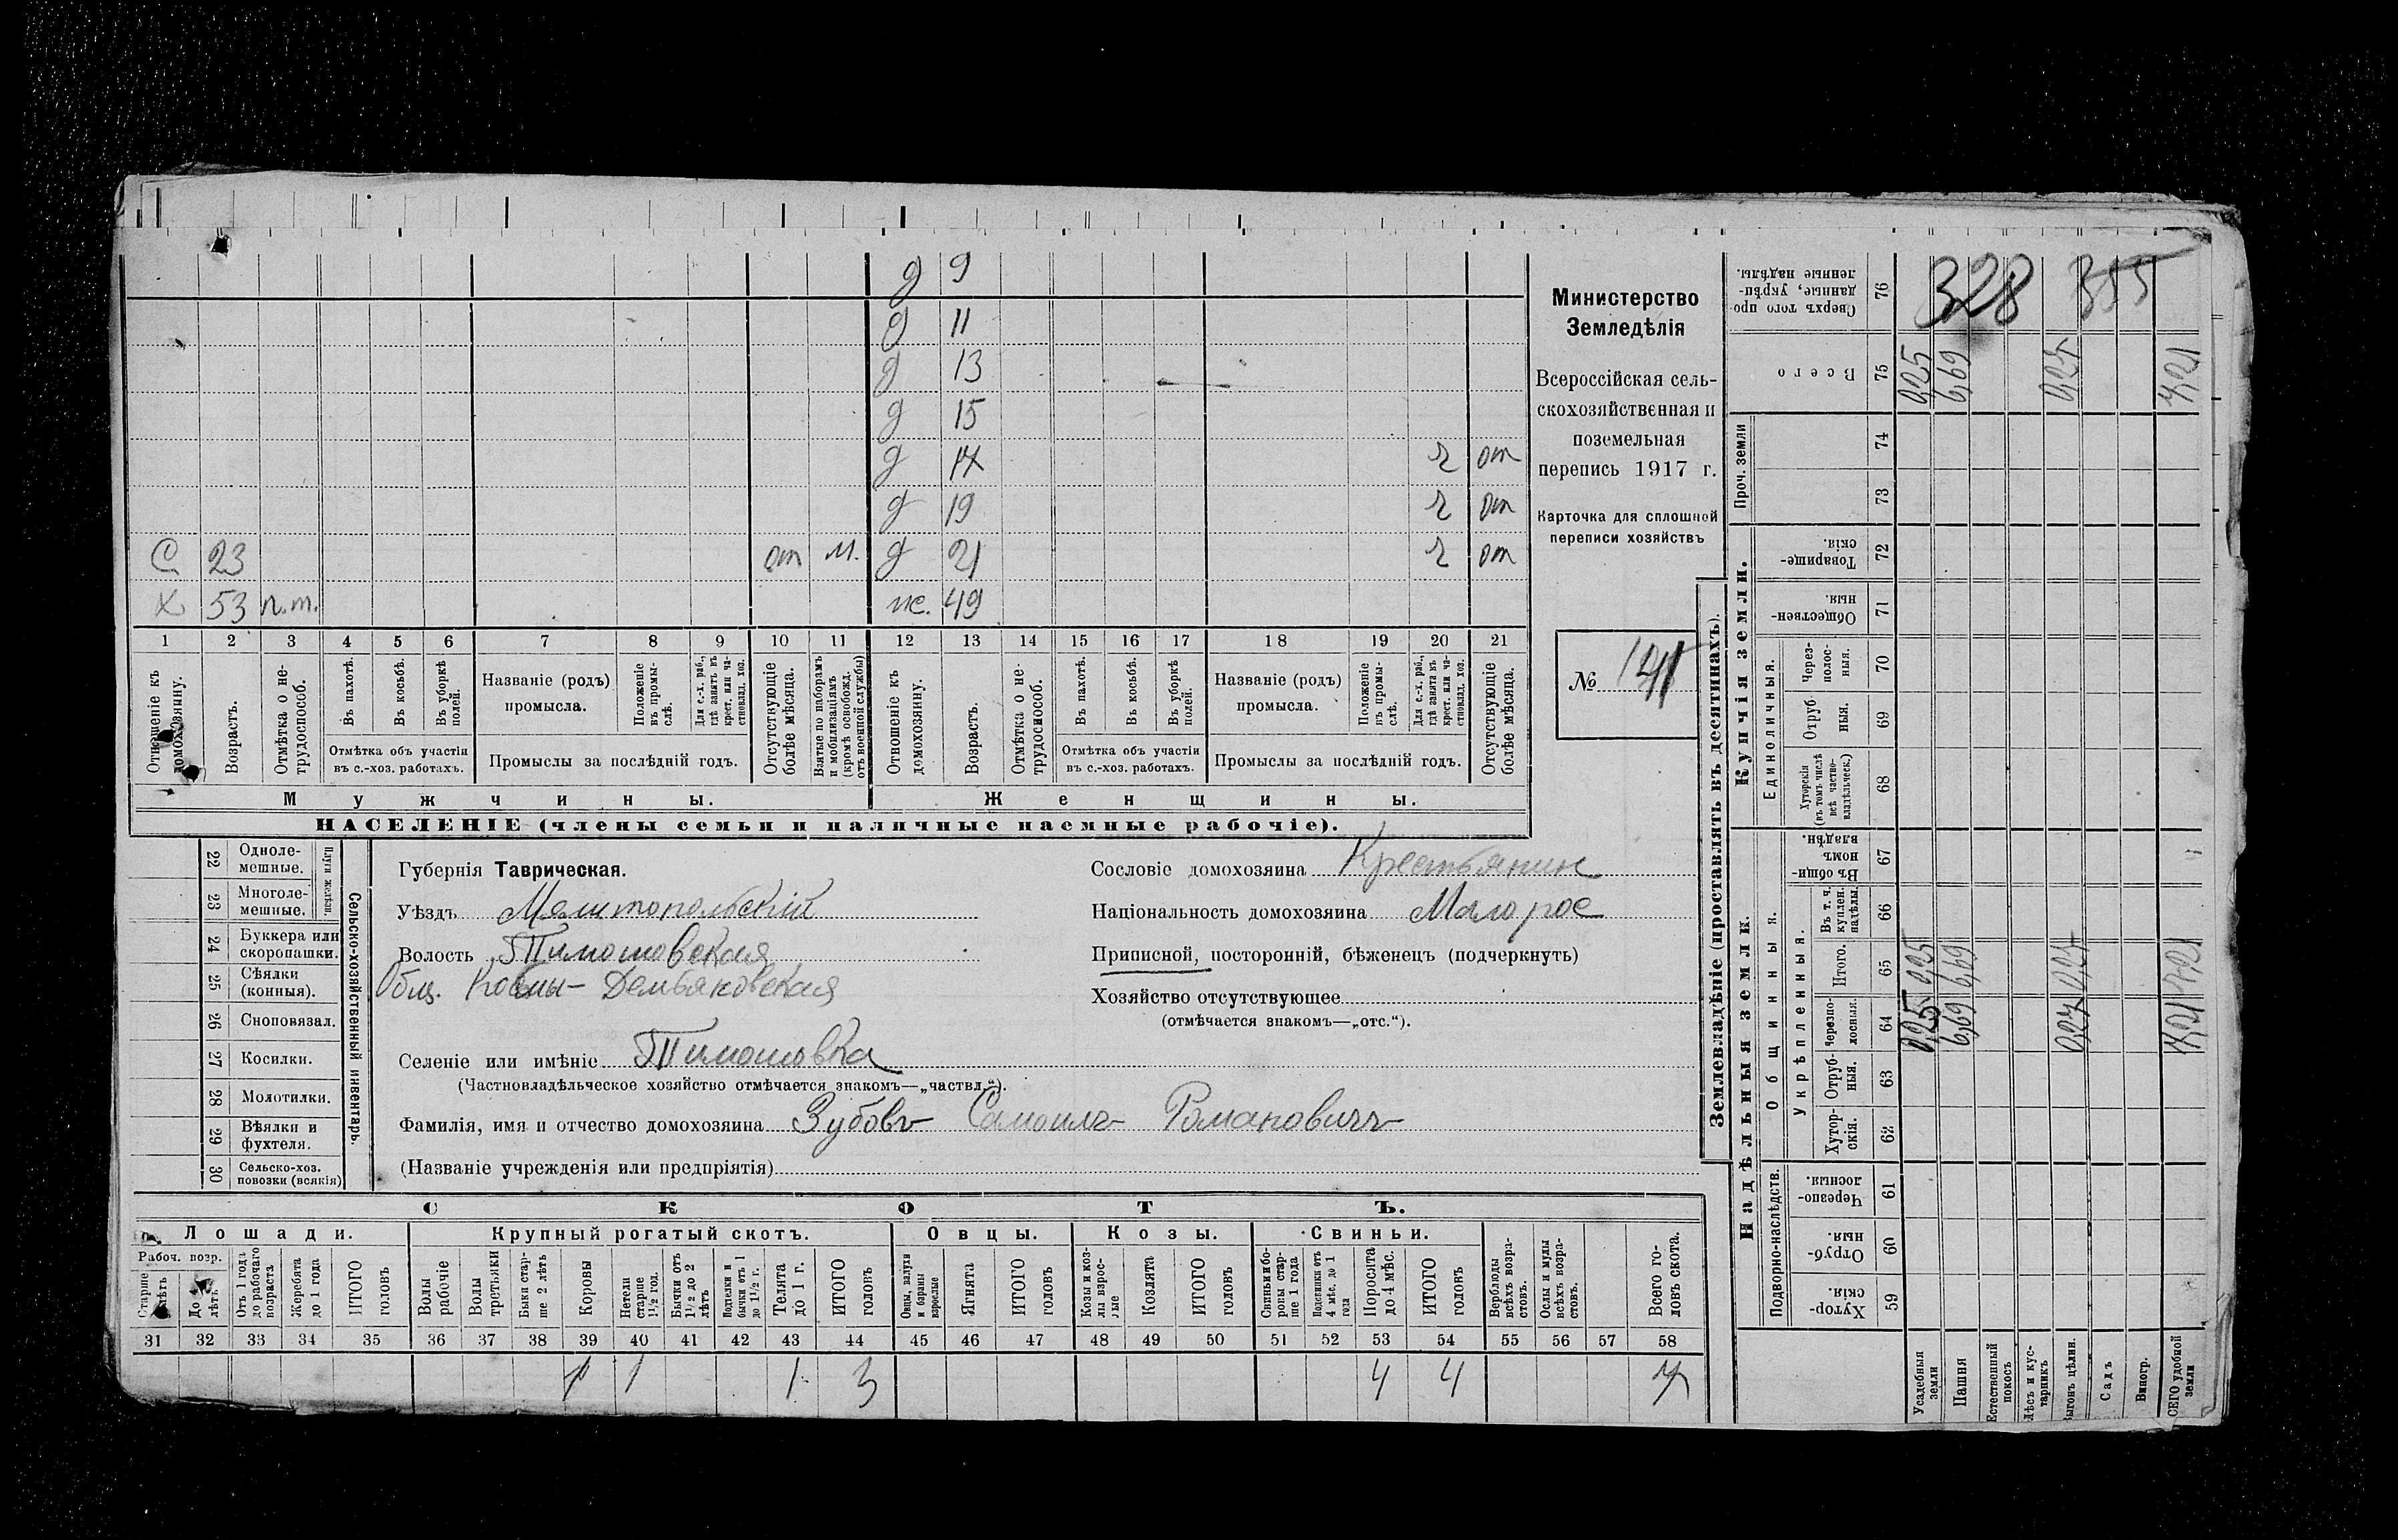 д 9
д 11
д 13
д 15
д 17 ч от
д 19 ч от
С 23 от м. д 21 ч от
Х 53 п.т. же. 49
1 2 3 4 5 6 7 8 9 10 11 12 13 14 15 16 17 18 19 20 21
Отношеніе къ домохозяину.
Возрастъ.
Отмѣтка о не-трудоспособ.
Въ пахотѣ.
Въ косьбѣ.
Въ уборкѣ полей.
Отмѣтка объ участіи
въ с.-хоз. работахъ.
Названіе (родъ)
промысла.
Положеніе въ промы-слѣ.
Для с.-х. раб., гдѣ занятъ въ крест. или ча-стновлад. хоз.
Промыслы за послѣдній годъ.
Отсутствующіе болѣе мѣсяца.
Взятые по наборамъ и мобилизаціямъ (кромѣ освобожд. отъ военной службы)
Отношеніе къ домохозяину.
Возрастъ.
Отмѣтка о не-трудоспособ.
Въ пахотѣ.
Въ косьбѣ.
Въ уборкѣ полей.
Отмѣтка объ участіи
въ с.-хоз. работахъ.
Названіе (родъ)
промысла.
Положеніе въ промы-слѣ.
Для с.-х. раб., гдѣ занята въ крест. или ча-стновлад. хоз.
Промыслы за послѣдній годъ.
Отсутствующіе болѣе мѣсяца.
Мужчины. Женщины.
НАСЕЛЕНІЕ (члены семьи и наличные наемные рабочіе).
Министерство
Земледѣлія
Всероссійская сель-
скохозяйственная и
поземельная
перепись 1917 г.
Карточка для сплошной
переписи хозяйствъ
№ 141
Сельско-хозяйственный инвентарь.
Плуги желѣзн.
22 Одноле-мешные.
23 Многоле-мешные.
24 Буккера или скоропашки.
25 Сѣялки (конныя).
26 Сноповязал.
27 Косилки.
28 Молотилки.
29 Вѣялки и фухтеля.
30 Сельско-хоз. повозки (всякія)
Губернія Таврическая.
Уѣздъ Мелитопольскій
Волость Тимошовская
Общ. Косьмы-Демьяновская
Селеніе или имѣніе Тимошовка
(Частновладѣльческое хозяйство отмѣчается знакомъ—„частвл.“).
Фамилія, имя и отчество домохозяина Зубовъ Самоилъ Романовичъ
(Названіе учрежденія или предпріятія)
Сословіе домохозяина Крестьянин
Національность домохозяина Малорос
Приписной, посторонній, бѣженецъ (подчеркнуть)
Хозяйство отсутствующее
(отмѣчается знакомъ—„отс.“).
СКОТЪ.
Лошади. Крупный рогатый скотъ. Овцы. Козы. Свиньи.
Рабоч. возр.
Старше лѣтъ
До лѣтъ
Отъ 1 года до рабочаго возраста
Жеребята до 1 года
ИТОГО головъ
Волы рабочіе
Волы третьяки
Быки стар-ше 2 лѣтъ
Коровы
Нетели старше 1½ год.
Бычки отъ 1½ до 2 лѣтъ
Нетелки и бычки отъ 1 до 1½ г.
Телята до 1 г.
ИТОГО головъ
Овцы, валухи и бараны взрослые
Ягнята
ИТОГО головъ
Козы и коз-лы взрос-лые
Козлята
ИТОГО головъ
Свиньи и бо-ровы стар-ше 1 года
Подсвинки отъ 4 мѣс. до 1 года
Поросята до 4 мѣс.
ИТОГО головъ
Верблюды всѣхъ возра-стовъ.
Ослы и мулы всѣхъ возра-стовъ.
Всего го-ловъ скота.
31 32 33 34 35 36 37 38 39 40 41 42 43 44 45 46 47 48 49 50 51 52 53 54 55 56 57 58
1 1 1 3 4 4 7
Землевладѣніе (проставлять въ десятинахъ).
Надѣльныя земли. Купчія земли.
Подворно-наслѣдств.
Общинныя.
Укрѣпленныя.
Единоличныя.
Проч. земли
59 Хутор-скія.
60 Отруб-ныя.
61 Черезпо-лосныя.
62 Хутор-скія.
63 Отруб-ныя.
64 Черезпо-лосныя.
65 Итого.
66 Въ т. ч. куплен. надѣлы
67 Въ общи-номъ владѣн.
68 Хуторскія (въ томъ числѣ всѣ частно-владѣльческ.)
69 Отруб-ныя.
70 Через-полос-ныя.
71 Обществен-ныя.
72 Товарище-скія.
73
74
75 Всего
76 Сверхъ того про-данные, укрѣп-ленные надѣлы.
Усадебныя земли 0,25 0,25 0,25
Пашня 6,69 6,69 6,69
Естественный покосъ
Лѣсъ и кус-тарникъ
Выгонъ цѣлин. 0,27 0,27 0,27
Садъ
Виногр.
ВСЕГО удобной земли 7,21 7,21 7,21
328 355